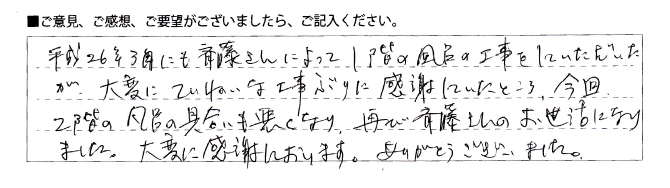 ■ご意見、ご感想、ご要望がございましたら、ご記入ください。
平成26年3月にも斉藤さんによって1階の風呂の工事をしていただいた
が、大変にていねいな工事ぶりに感謝していたところ、今回
2階の風呂の具合いも悪くなり、再び斉藤さんのお世話になり
ました。大変に感謝しております。ありがとうございました。